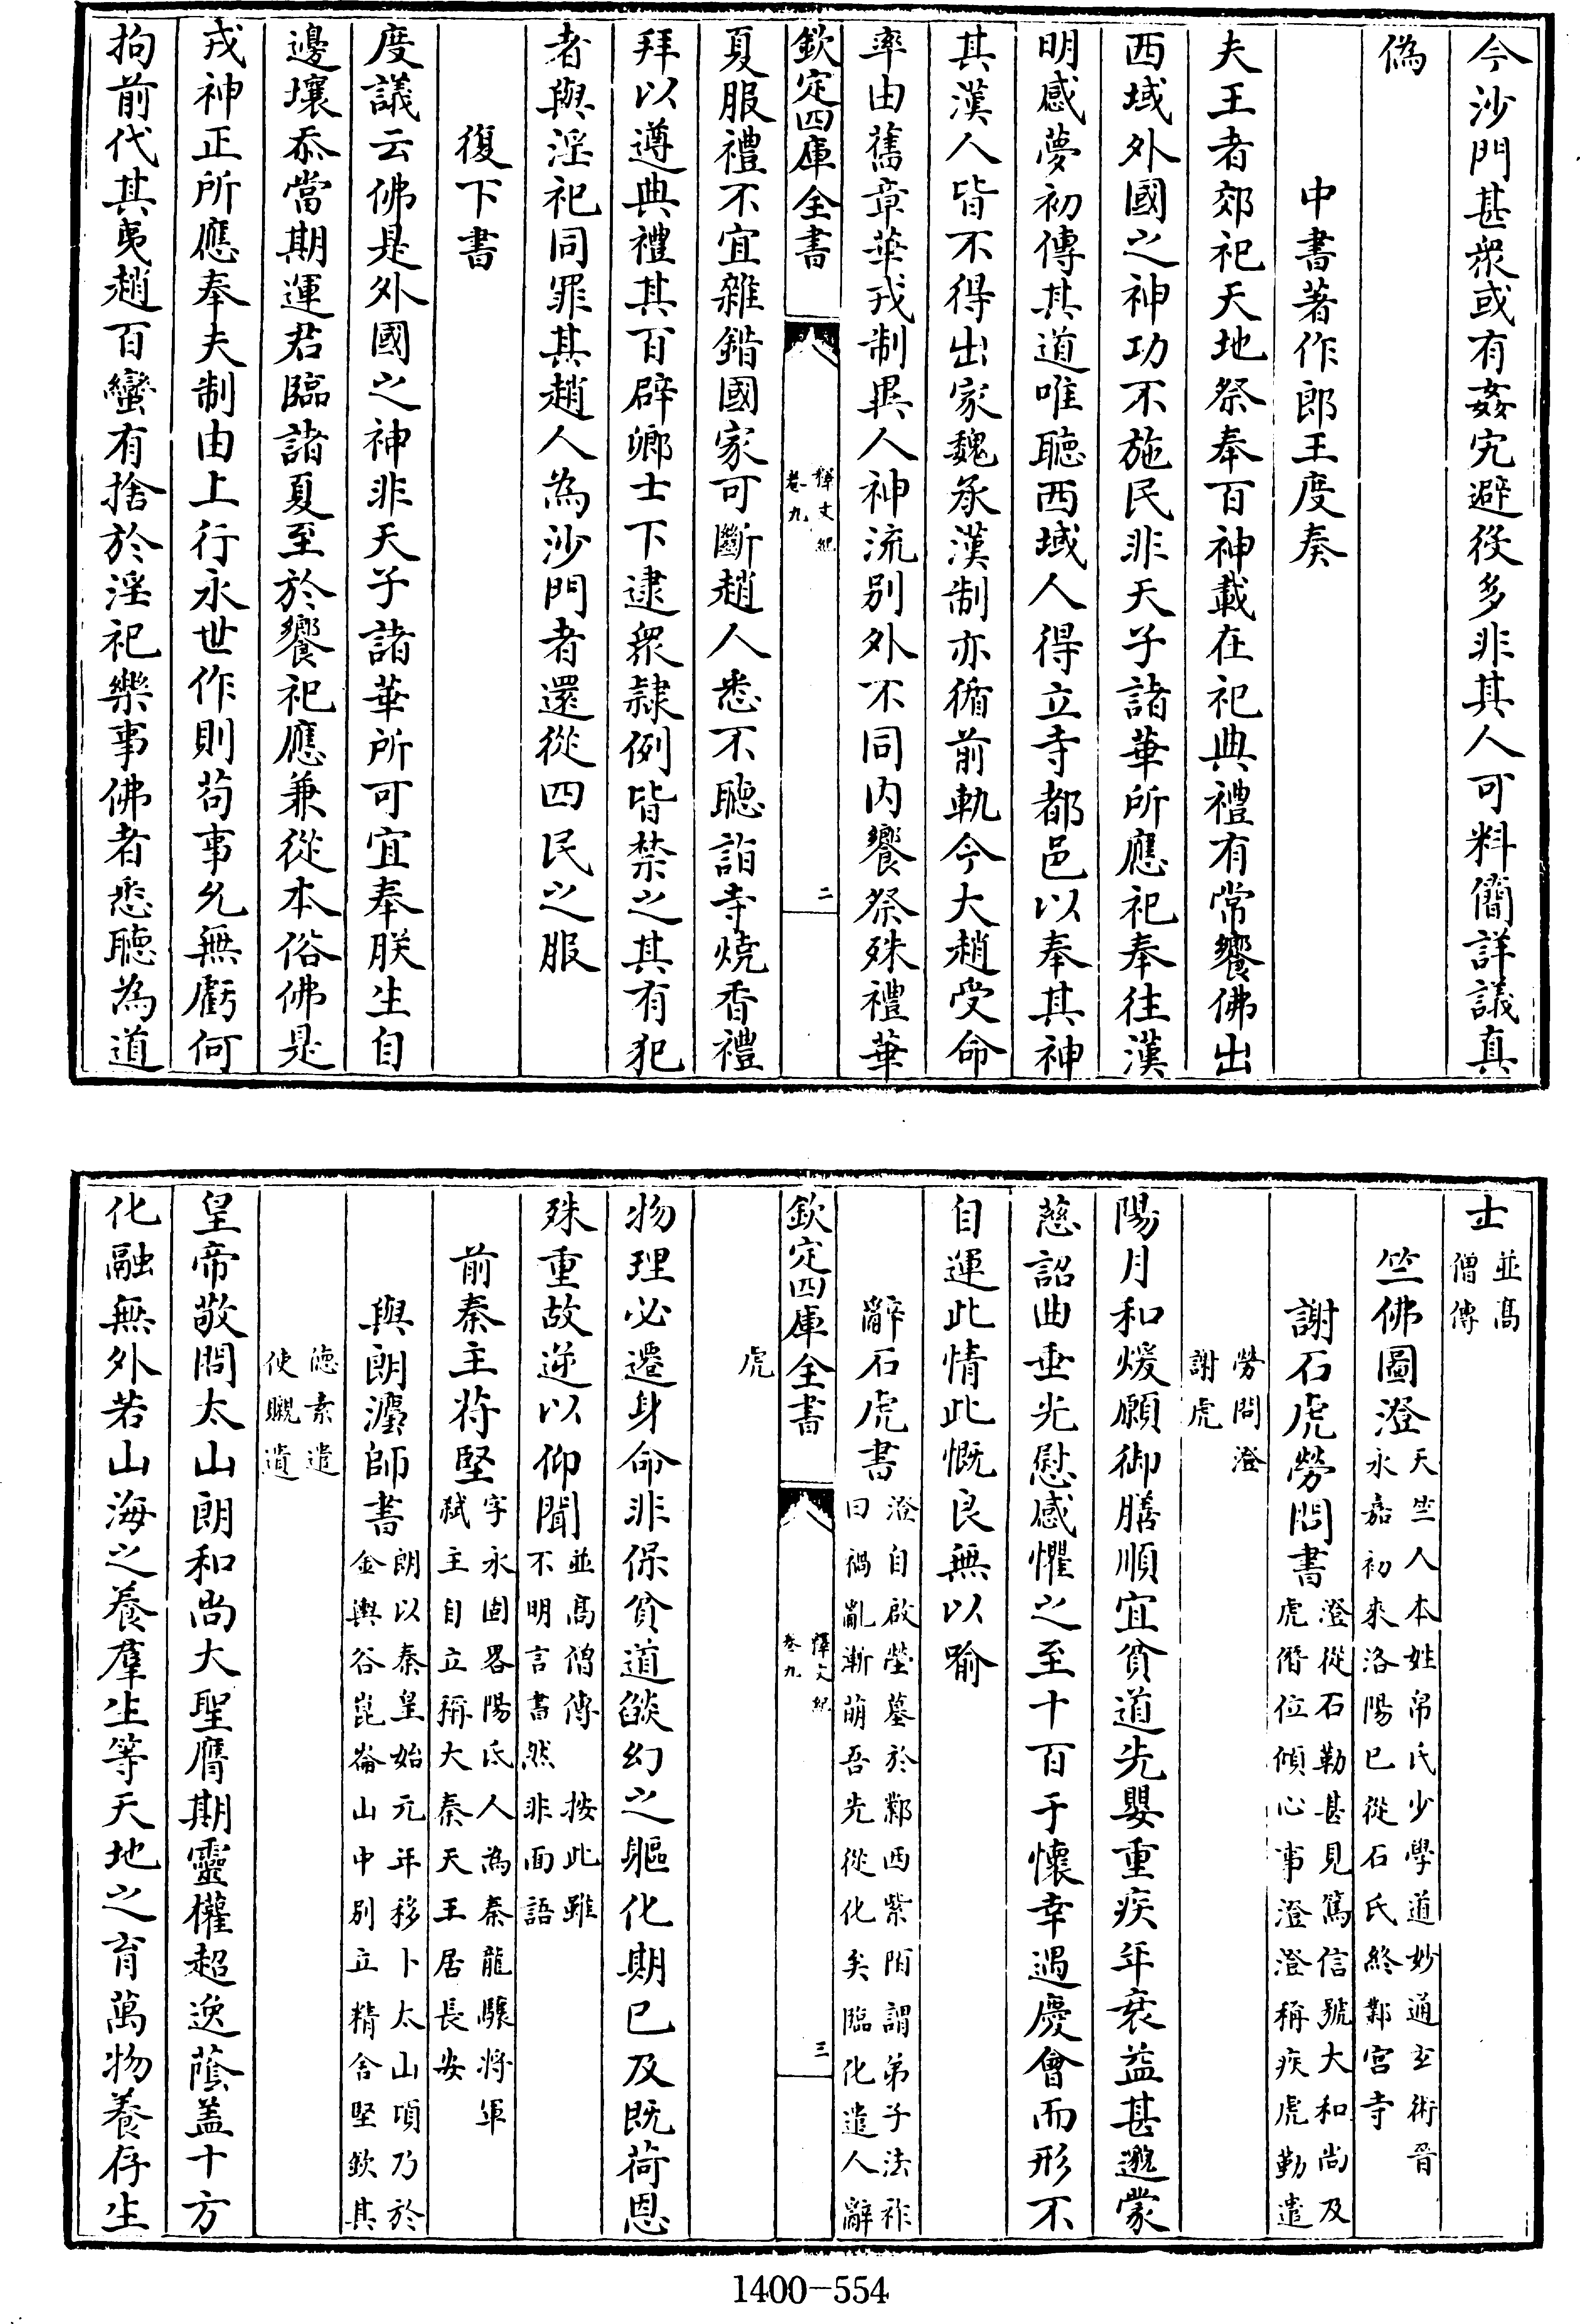 今沙門甚衆或有姦宄避役多非其人可料簡詳議真
偽
中書著作郎王度奏
夫王者郊祀天地祭奉百神載在祀典禮有常饗佛出
西域外國之神功不施民非天子諸華所應祀奉往漢
明感夢初傳其道唯聽西域人得立寺都邑以奉其神
其漢人皆不得出家魏承漢制亦循前軌今大趙受命
率由舊章華戎制異人神流别外不同内饗祭殊禮華
欽定四庫全書
釋文紀
卷九
二
夏服禮不宜雜錯國家可斷趙人悉不聽詣寺燒香禮
拜以遵典禮其百辟卿士下逮衆隸例皆禁之其有犯
者與淫祀同罪其趙人為沙門者還從四民之服
復下書
度議云佛是外國之神非天子諸華所可宜奉朕生自
邊壤忝當期運君臨諸夏至於饗祀應兼從本俗佛是
戎神正所應奉夫制由上行永世作則苟事允無虧何
拘前代其夷趙百蠻有捨於淫祀樂事佛者悉聽為道
士
並高
僧傳
竺佛圖澄
天竺人本姓帛氏少學道妙通玄術晉
永嘉初來洛陽已從石氏終鄴宫寺
謝石虎勞問書
澄從石勒甚見篤信號大和尚及
虎僭位傾心事澄澄稱疾虎勤遣
勞問澄
謝虎
陽月和煖願御膳順宜貧道先嬰重疾年衰益甚邈蒙
慈詔曲垂光慰感懼之至十百于懷幸遇慶會而形不
自運此情此慨良無以喻
辭石虎書
澄自啟塋墓於鄴西紫陌謂弟子法祚
曰禍亂漸萌吾先從化矣臨化遣人辭
欽定四庫全書
釋文紀
卷九
三
虎
物理必遷身命非保貧道燄幻之軀化期已及既荷恩
殊重故逆以仰聞
並高僧傳　按此雖
不明言書然非面語
前秦主苻堅
字永固畧陽氐人為秦龍驤將軍
弑主自立稱大秦天王居長安
與朗法師書
朗以秦皇始元年移卜太山項乃於
金輿谷崑崙山中别立精舍堅欽其
德素遣
使覜遺
皇帝敬問太山朗和尚大聖膺期靈權超逸蔭蓋十方
化融無外若山海之養羣生等天地之育萬物養存生
1400-554